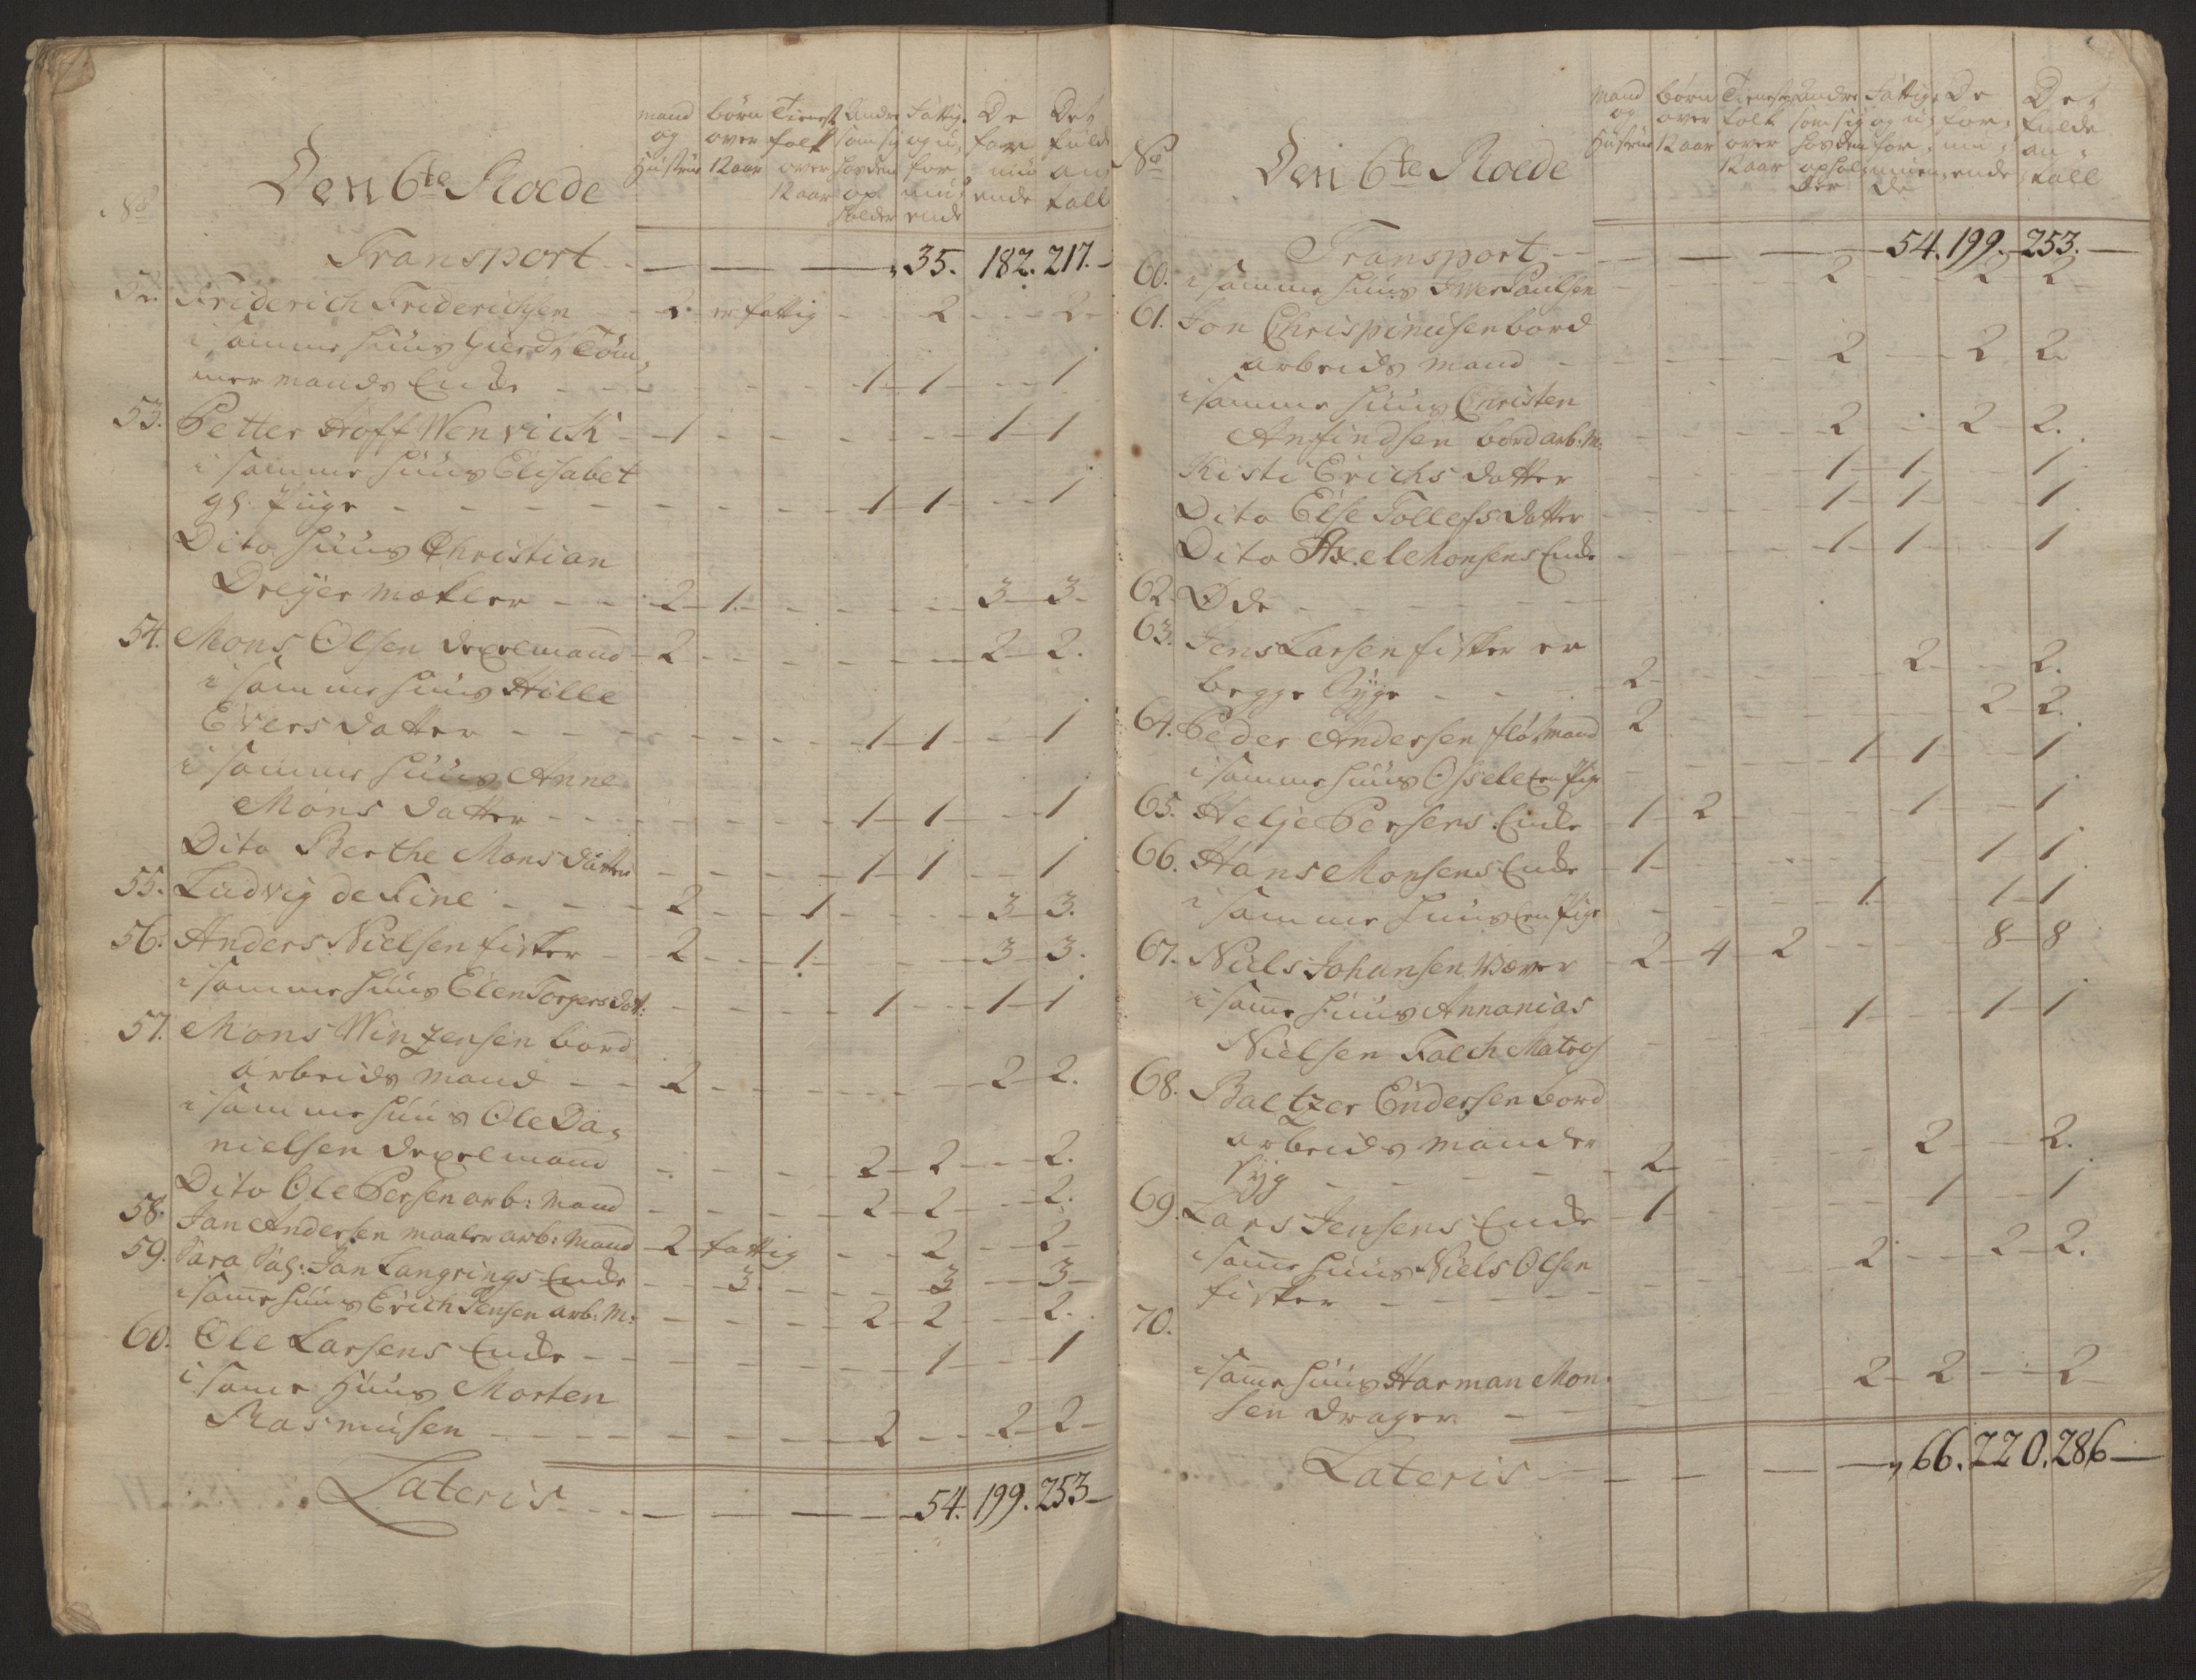 No
Den 6te Roede
mand og Hustrue
børn over 12 aar
Tienest folk over 12 aar
Andre som sig hosden op holder
Fattige og u, for mu, ende
De for mu ende
Det fulde an tall
Transport - - - - 35. 182. 217. -
52. Friderich Friderichsen - 2. er fattig - - 2 - - - 2 -
i samme huus Giert Töm,
mermands Enke - - - - - 1 - 1 - - - 1
53. Petter Hoff Wenrick - 1 - - - - - - 1 - 1
i samme huus Elisabet
gl. Piige - - - - - - - - 1 - 1 - - - 1
Dito huus Christian
Dreÿer mækler - - 2 - 1. - - - - - 3 - 3 -
54. Mons Olsen drexelmand - 2 - - - - - - 2 - 2.
i samme huus Hille
Evers datter - - - - - - - 1 - 1 - - - 1
i samme huus Anne
Mons datter - - - - - - - 1 - 1 - - - 1
Dito Berthe Mons datter - - - - 1 - 1 - - 1
55. Ludvig de Fine - - - 2 - - 1 - - - - 3 - 3.
56. Anders Nielsen fisker - 2 - - 1 - - - - 3 - 3.
i samme huus Elen Torgers dat: - - - - 1 - - - 1 - 1
57. Mons Winzensen bord
arbeids mand - - 2 - - - - - - 2 - 2.
i samme huus Ole Da,
nielsen drexelmand - - - - 2 - 2 - - - 2.
Dito Ole Persen arb: mand - - - - 2 - 2 - - - 2.
58. Jan Andersen maaler arb: mand - 2 - fattig - - 2 - - 2 -
59. Sara Sal: Jan Langrings Enke - - 3. - - - 3 - - - 3 -
i samme huus Erich Jensen arb: M: - - - - 2 - 2 - - - 2.
60. Ole Larsens Enke - - - - - - - 1 - - - 1
i samme Huus Morten
Rasmusen - - - - - - - - 2 - - - 2 - 2 -
Lateris - - - - - - - 54. 199. 253 -
No
Den 6te Roede
mand og Hustrue
børn over 12 aar
Tienest folk over 12 aar
Andre som sig hosden ophol der
Fattige og u, for, muen, de
De for, mu, ende
Det fulde an, tall
Transport - - - - - 54. 199. - 253. -
60. i samme huus Iver Paulsen - - - - 2 - - - 2 - 2
61. Jon Chrispinusen bord
arbeids mand - - - - - 2 - - - 2 2.
i samme huus Christen
Anfindsen bord arb: M: - - - - 2 - - 2 - 2.
Kisti Erichs datter - - - - 1 - 1 - - - 1
Dito Else Tollefs datter - - - - 1 - 1 - - - 1
Dito Axel Monsens Enke - - - - 1 - 1 - - - 1
62. Øde - - - - - -
63. Jens Larsen fisker er
begge Syge - - - - 2 - - - - 2 - - - 2.
64. Peder Andersen flödmand 2 - - - - - - 2 - 2.
i samme huus Osselet en Pige - - - - 1 - 1 - - - 1
65. Helje Persens Enke - 1 - 2 - - - 1 - - - 1
66. Hans Monsens Enke - 1 - - - - - - 1 - 1
i samme huus en Pige - - - - 1 - - - 1 - 1
67. Niels Johansen Wæver - 2 - 4 - 2 - - - - 8 - 8
i samme huus Annanias
Nielsen Falch Matros - - - - 1 - - - 1 - 1
68. Baltzer Endersen bord
arbeids mand er
syg - - - - - - 2 - - - - 2 - - - 2.
69. Lars Jensens Enke - 1 - - - - 1 - - - 1
i samme huus Niels Olsen
fisker - - - - - - - - - 2 - - - 2 - 2.
70.
i samme huus Harman Mon,
sen drager - - - - - - 2 - 2 - - - 2 -
Lateris - - - - - 66. 220. 286 -